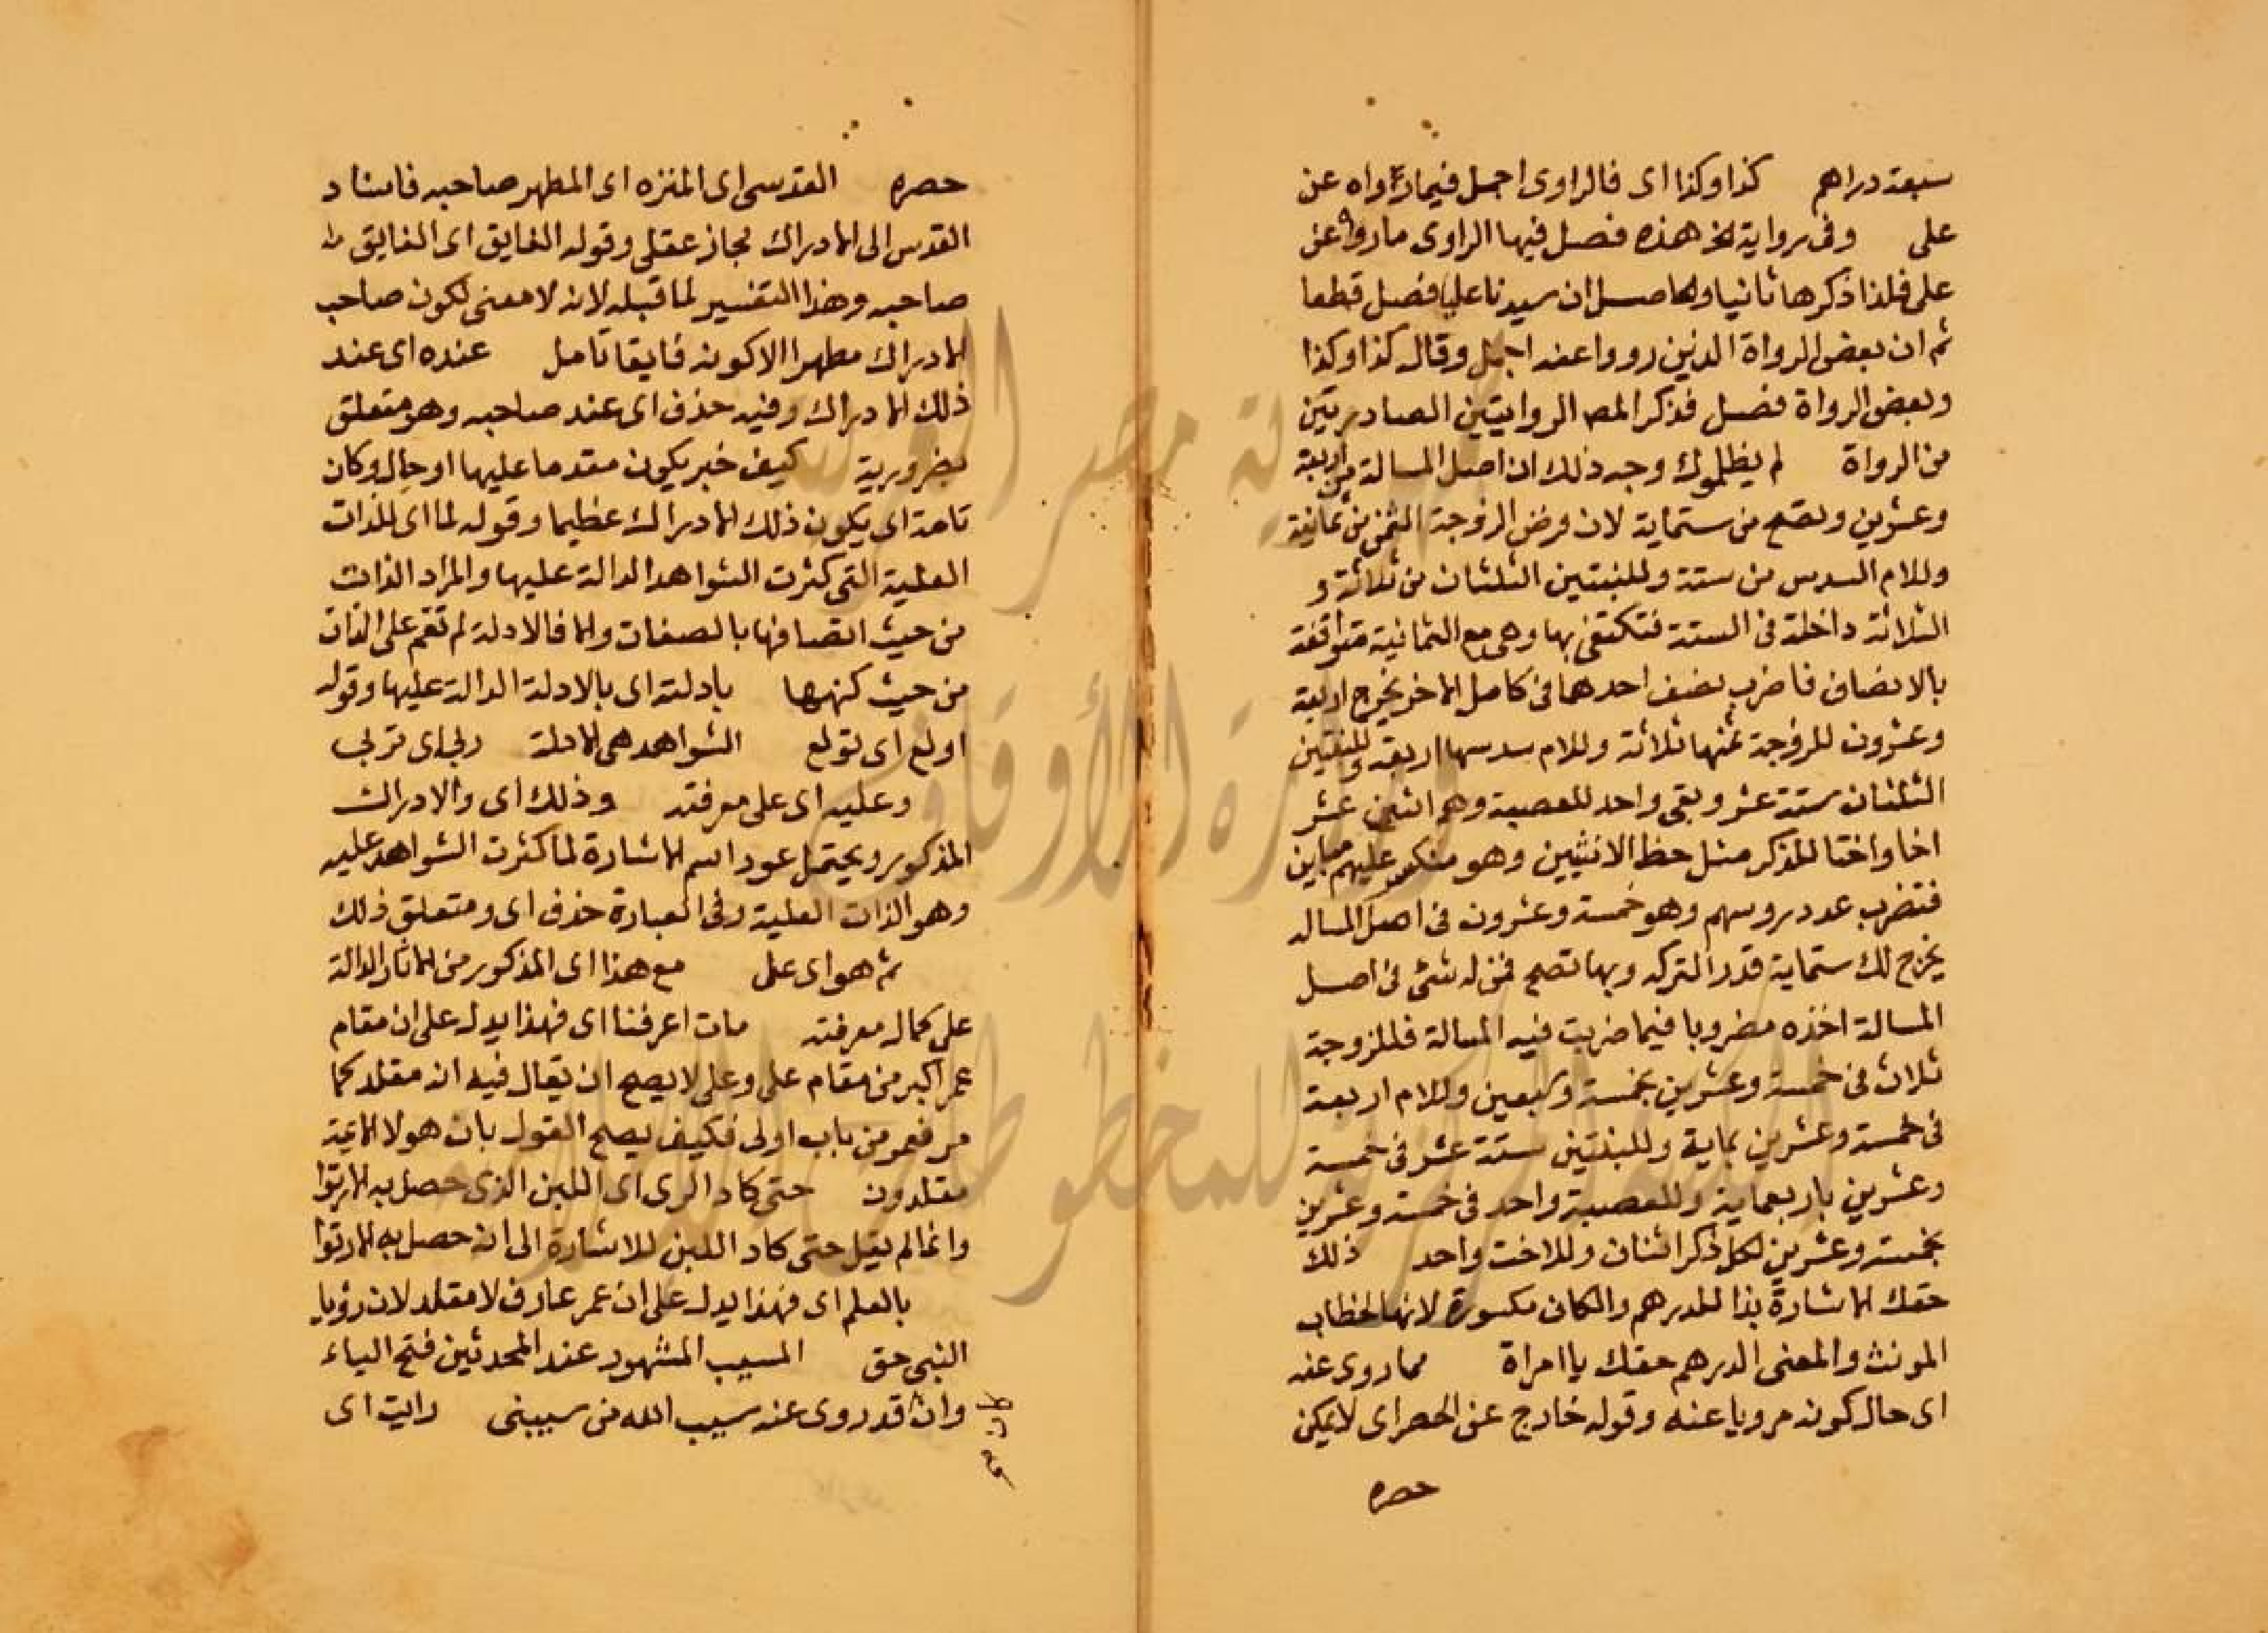 سبعة دراهم كذا وكذا اى فالراوى اجمل فيما رواه عن
على وفى رواية الخ هذه فصل فيها الراوى ما رواه عن
على فلذا ذكرها ثانيا والحاصل ان سيدنا عليا فصل قطعا
ثم ان بعض الرواة الذين رووا عنه اجمل وقال كذا وكذا
وبعض الرواة فصل فذكر المص الروايتين الصادرتين
من الرواة لم يظلموك وجه ذلك ان اصل المسالة من اربعة
وعشرين وتصح من ستماية لان فرض الزوجة الثمن من ثمانية
وللام السدس من ستة وللبنتين الثلثان من ثلاثة و
الثلاثة داخلة فى الستة فتكتفى بها وهى مع الثمانية متوافقة
بالانصاف فاضرب نصف احدهما فى كامل الاخر يخرج اربعة
وعشرون للزوجة ثمنها ثلاثة وللام سدسها اربعة وللبنتين
الثلثان ستة عشر وبقى واحد للعصبة وهو اثنى عشر
اخا واختا للذكر مثل حظ الانثيين وهو منكسر عليهم مباين
فتضرب عدد روسهم وهو خمسة وعشرون فى اصل المسالة
يخرج لك ستماية قدر التركه وبها تصح فمن له شئ فى اصل
المسالة اخذه مضروبا فيما ضربت فيه المسالة فللزوجة
ثلاث فى خمسة وعشرين بخمسة وسبعين وللام اربعة
فى خمسة وعشرين بماية وللبنتين ستة عشر فى خمسة
وعشرين باربعماية وللعصبة واحد فى خمسة وعشرين
بخمسة وعشرين لكل ذكر اثنان وللاخت واحد ذلك
حقك الاشارة بذا للدرهم والكاف مكسورة لانها لخطاب
المونث والمعنى الدرهم حقك يا امراة مما روى عنه
اى حال كونه مرويا عنه وقوله خارج عن الحصر اى لا يمكن
حصره
حصره القدسى اى المنزه اى المطهر صاحبه فاسناد
القدس الى الادراك مجاز عقلى وقوله الفايق اى الفايق
صاحبه وهذا التفسير لما قبله لانه لا معنى لكون صاحب
الادراك مطهرا الا كونه فايقا تامل عنده اى عند
ذلك الادراك وفيه حذف اى عند صاحبه وهو متعلق
بضرورية كيف خبر يكون مقدما عليها او حال وكان
تامة اى يكون ذلك الادراك عظيما وقوله لما اى للذات
العلية التى كثرت الشواهد الدالة عليها والمراد الذات
من حيث اتصافها بالصفات والا فالادلة لم تقم على الذات
من حيث كنهها بادلته اى بالادلة الدالة عليها وقوله
اولع اى تولع الشواهد هى الادلة ربى اى تربى
وعليه اى على معرفته وذلك اى والادراك
المذكور ويحتمل عود اسم الاشارة لما كثرت الشواهد عليه
وهو الذات العلية وفى العبارة حذف اى ومتعلق ذلك
ثم هو اى على مع هذا اى المذكور من الاثار الدالة
على كمال معرفته مات اعرفنا اى فهذا يدل على ان مقام
عمر اكبر من مقام على وعلى لا يصح ان يقال فيه انه مقلد كما
مر فعمر من باب اولى فكيف يصح القول بان هولا الايمة
مقلدون حتى كاد الرى اى اللبن الذى حصل به الارتوا
وانما لم يقل حتى كاد اللبن للاشارة الى انه حصل به الارتوا
بالعلم اى فهذا يدل على ان عمر عارف لا مقلد لان رؤيا
النبى حق المسيب المشهور عند المحدثين فتح الياء
وان قد روى عنه سيب الله من سيبنى رايت اى